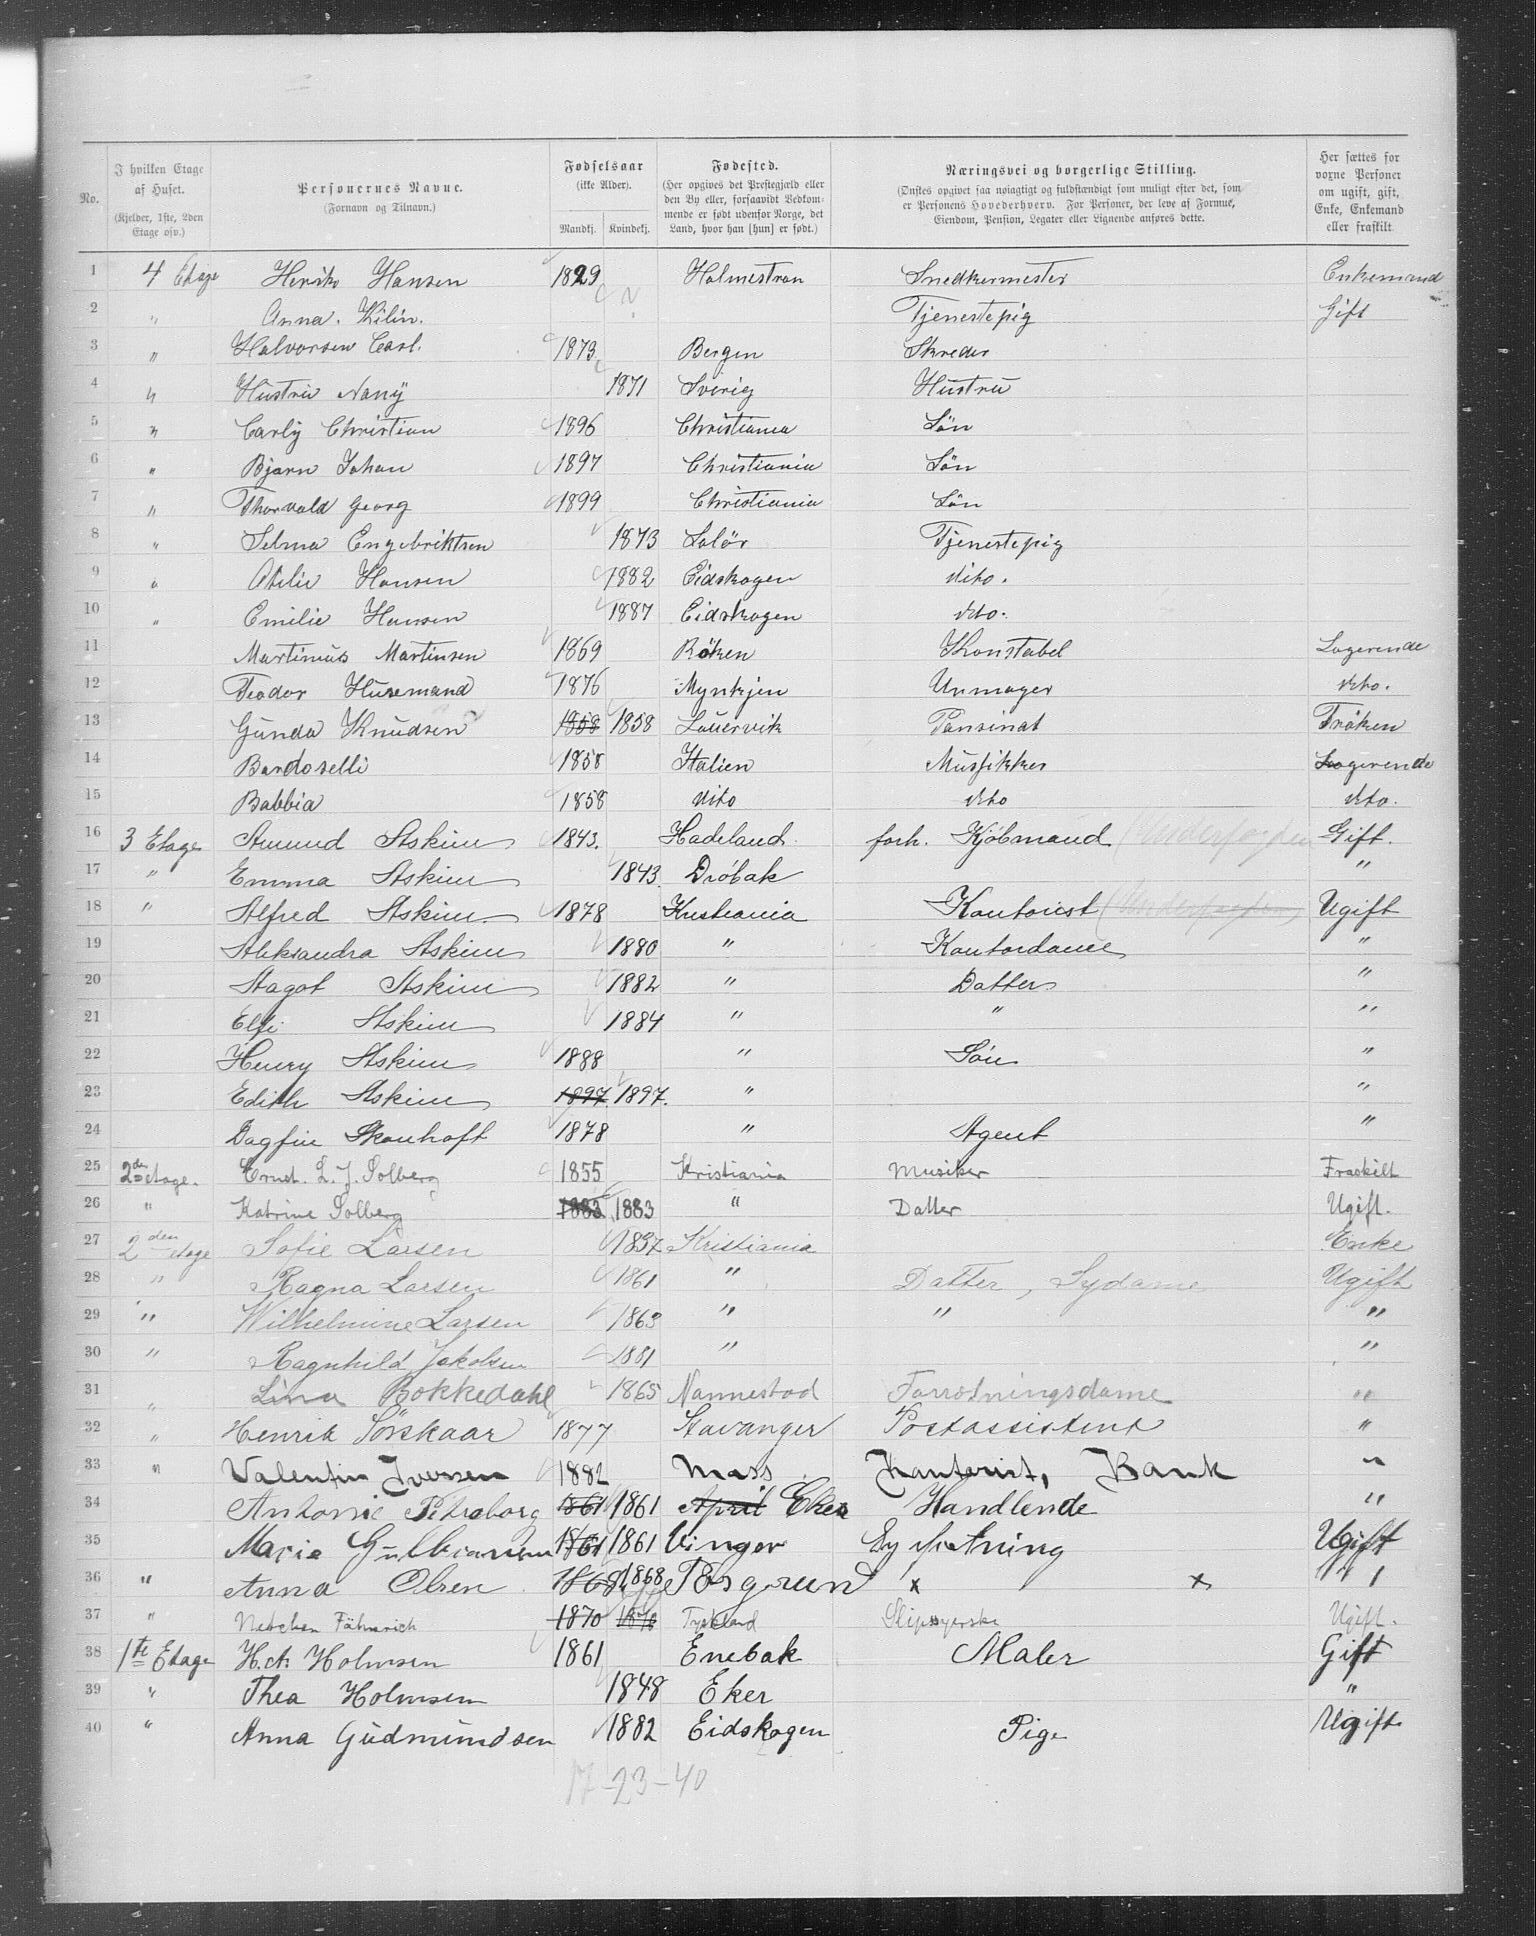 No.
I hvilken Etage af Huset.
(Kjelder, 1ste, 2den Etage osv.)
Personernes Navne.
(Fornavn og Tilnavn.)
Fødselsaar
(ikke Alder).
Mandkj. Kvindekj.
Fødested.
(Her opgives det Prestegjæld eller den By eller, forsaavidt Vedkommende er født udenfor Norge, det Land, hvor han [hun] er født.)
Næringsvei og borgerlige Stilling.
(Ønskes opgivet saa nøiagtigt og fuldstændigt som muligt efter det, som er Personens Hovederhverv. For Personer, der leve af Formue, Eiendom, Pension, Legater eller Lignende anføres dette.
Her sættes for voxne Personer om ugift, gift, Enke, Enkemand eller fraskilt
1 4 Etage Henrik Hansen 1829 Holmestran Snedkermester Enkemand
2 " Anna. Kilin. Tjenestepig Gift
3 " Halvorsen Carl. 1873 Bergen Skreder
4 " Hustru Nanÿ 1871 Sverig Hustru
5 " Carly Christian 1896 Christiania Sön
6 " Bjarn Johan 1897 Christiania Sön
7 " Thorvald Georg 1899 Christiania Sön
8 " Selma Engebriktsen 1873 Solör Tjenestepig
9 " Otilie Hansen 1882 Eidskogen dito.
10 " Emilie Hansen 1887 Eidskogen dto.
11 Martinus Martinsen 1869 Röken Konstabel Logerende
12 Teodor Husemand 1876 Mynkjen Urmager dto.
13 Gunda Knudsen 1858 1858 Lauervik Pansinat Fröken
14 Bardoselli 1858 Italien Mussikker Logerende
15 Babbia 1858 dito dto dto.
16 3 Etage Amund Askim 1843. Hadeland. forh. Kjöbmand Gift.
17 " Emma Askim 1843. Dröbak "
18 " Alfred Askim 1878 Kristiania Kontorist Ugift
19 Aleksandra Askim 1880 " Kontordame "
20 Aagot Askim 1882 " Datter "
21 Elfi Askim 1884 " " "
22 Henry Askim 1888 " Sön "
23 Edith Askim 1897. 1897. " "
24 Dagfin Skonhoft 1878 " Agent "
25 2den etage. Ernst. L. J. Solberg 1855 Kristiania Musiker Fraskilt
26 " Katrine Solberg 1883 1883 " Datter Ugift.
27 2den etage Sofie Larsen 1837 Kristiania Enke
28 " Ragna Larsen 1861 " Datter, Sydame Ugift
29 " Wilhelmine Larsen 1863 " " "
30 " Ragnhild Jakobsen 1881 " "
31 " Lina Bokkedahl 1865 Nannestad Forretningsdame "
32 " Henrik Sörskaar 1877 Stavanger Postassistent "
33 " Valentin Iversen 1882 Moss Kontorist, Bank "
34 Antonie Petersborg 1861 1861 Eker Handlende "
35 Marie Gulbransen 1861 1861 Vinger Ugift
36 " Anna Olsen 1868 1868 Porsgrund x x "
37 " Netchen Fähnrich 1870 1870 Tyskland Ugift.
38 1te Etage H. A. Holmsen 1861 Enebak Maler Gift
39 " Thea Holmsen 1848 Eker "
40 " Anna Gudmundsen 1882 Eidskogen Pige Ugift
17-23-40